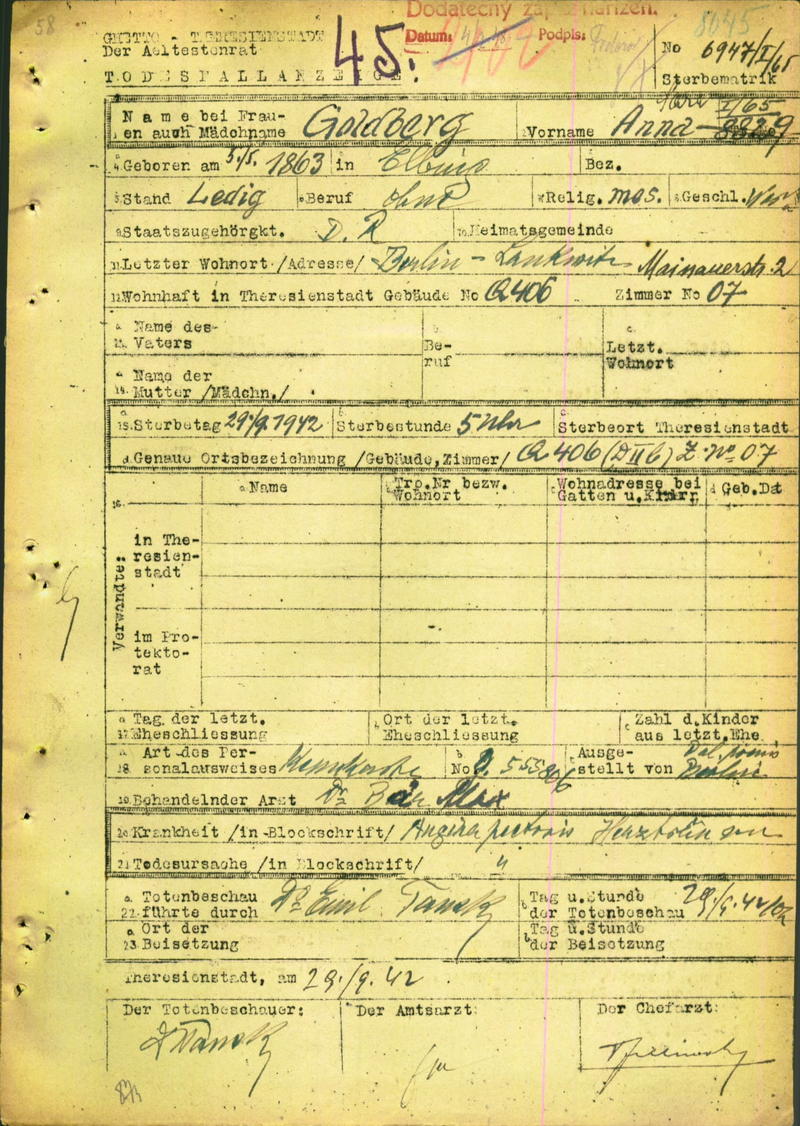 58
Dodatečný zápis nařízen.
8045
GHETTO - THERESIENSTADT
Der Aeltestenrat
45.
Datum: Podpis:
No 6947/I/65
TODESFALLANZEIGE
Sterbematrik
I/65
Name bei Frau-
en auch Mädchname Goldberg Vorname Anna
Geboren am 5./5. 1863 in Elbing Bez.
Stand Ledig Beruf ohne Relig. mos. Geschl.
Staatszugehörgkt. D.R Heimatsgemeinde
Letzter Wohnort /Adresse/ Berlin - Lankwitz Mainauerstr. 2
Wohnhaft in Theresienstadt Gebäude No Q406 Zimmer No 07
Name des
Vaters
Be-
ruf
Letzt.
Wohnort
Name der
Mutter /Mädchn./
15. Sterbetag 29./9. 1942 Sterbestunde 5 Uhr Sterbeort Theresienstadt
Genaue Ortsbezeichnung /Gebäude, Zimmer/ Q 406 (D II 6) Z. No 07
Name
Trp.Nr bezw.
Wohnort
Wohnadresse bei
Gatten u.Kindrr.
Geb.Dat
16.
Verwandte:
in The-
resien-
stadt
im Pro-
tekto-
rat
Tag der letzt.
Eheschliessung
Ort der letzt.
Eheschliessung
Zahl d.Kinder
aus letzt.Ehe
Art des Per-
18 sonalausweises Kennkarte
No
Ausge-
stellt von Berlin
19. Behandelnder Arzt Dr Max
20. Krankheit /in Blockschrift/ Angina pectoris
21. Todesursache /in Blockschrift/ "
Totenbeschau
22. führte durch Dr Emil Tansk
Tag u.Stunde
der Totenbeschau 29./9. 42
Ort der
23. Beisetzung
Tag u.Stunde
der Beisetzung
Theresienstadt, am 29./9. 42
Der Totenbeschauer: Der Amtsarzt: Der Chefarzt: